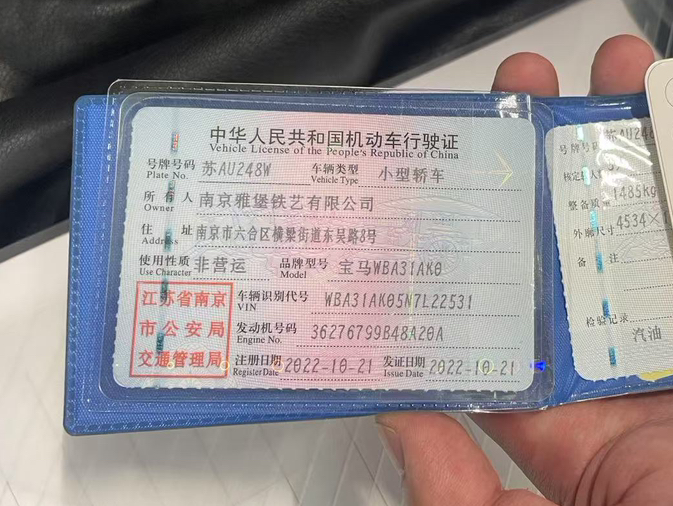 中华人民共和国机动车行驶证
Vehicle License of the People's Republic of China
号牌号码 苏AU248W 车辆类型 小型轿车
Plate No. Vehicle Type
所有人 南京雅堡铁艺有限公司
Owner
住址 南京市六合区横梁街道东吴路8号
Address
使用性质 非营运 品牌型号 宝马WBA31AK0
Use Character Model
江苏省南京
市公安局
交通管理局
车辆识别代号 WBA31AK05N7L22531
VIN
发动机号码 36276799B48A20A
Engine No.
注册日期 2022-10-21 发证日期 2022-10-21
Register Date Issue Date
号牌号码 苏AU248
核定
整备质量 1485kg
外廓尺寸 4534×1
备注
检验记录
汽油